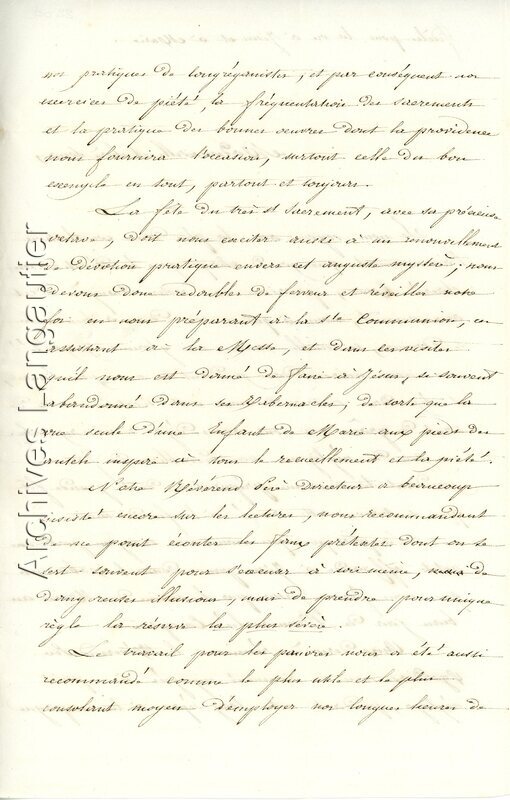 nos pratiques de congréganistes, et par conséquent nos
exercices de piété, la fréquentation des sacrements
et la pratique des bonnes œuvres dont la providence
nous fournira l'occasion, surtout celle du bon
exemple en tout, partout et toujours.
La fête du très St Sacrement, avec sa précieuse
octave, doit nous exciter aussi à un renouvellement
de dévotion pratique envers cet auguste mystère; nous
devons donc redoubler de ferveur et réveiller notre
foi en nous préparant à la Ste Communion, en
assistant à la Messe, et dans les visites
qu'il nous est donné de faire à Jésus, si souvent
abandonné dans ses Tabernacles; de sorte que la
vue seule d'une Enfant de Marie aux pieds des
autels inspire à tous le recueillement et la piété.
Notre Révérend Père Directeur a beaucoup
insisté encore sur les lectures, nous recommandant
de ne point écouter les faux prétextes dont on se
sert souvent pour s'excuser à soi même, de
dangereuses illusions, mais de prendre pour unique
règle la réserve la plus sévère.
Le travail pour les pauvres nous a été aussi
recommandé comme le plus utile et le plus
consolant moyen d'employer nos longues heures de
Archives Langautier